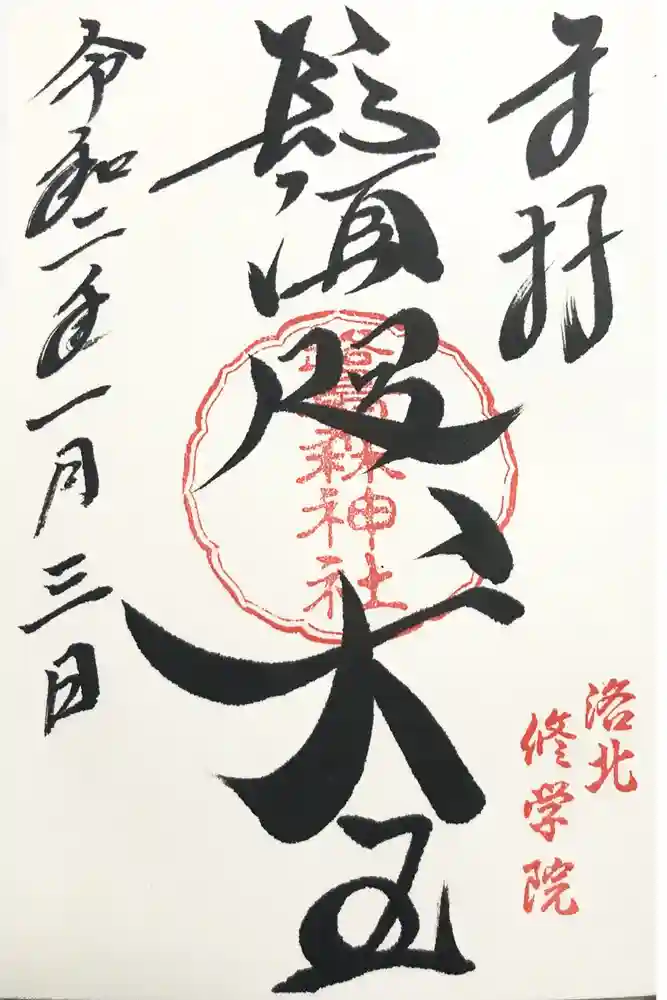 奉拝
鬚咫天王
鷺森神社
洛北
修学院
令和二年一月三日